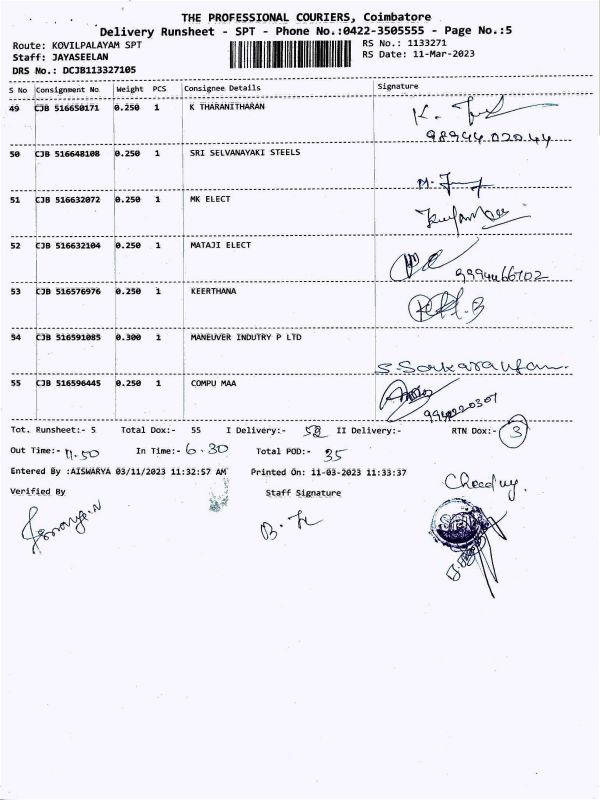 THE PROFESSIONAL COURIERS, Coimbatore
Delivery Runsheet - SPT - Phone No.:0422-3505555 - Page No.:5
Route: KOVILPALAYAM SPT
RS No.: 1133271
Staff: JAYASEELAN
RS Date: 11-Mar-2023
DRS No.: DCJB113327105
S No Consignment No Weight PCS Consignee Details Signature
49 CJB 516650171 0.250 1 K THARANITHARAN
98944 02044
50 CJB 516648108 0.250 1 SRI SELVANAYAKI STEELS
51 CJB 516632072 0.250 1 MK ELECT
52 CJB 516632104 0.250 1 MATAJI ELECT
9994466702
53 CJB 516576976 0.250 1 KEERTHANA
54 CJB 516591085 0.300 1 MANEUVER INDUTRY P LTD
55 CJB 516596445 0.250 1 COMPU MAA
Tot. Runsheet:- 5 Total Dox:- 55 I Delivery:- 52 II Delivery:- RTN Dox:- 3
Out Time:- 11.50 In Time:- 6.30 Total POD:- 35
Entered By :AISWARYA 03/11/2023 11:32:57 AM Printed On: 11-03-2023 11:33:37
Verified By Staff Signature